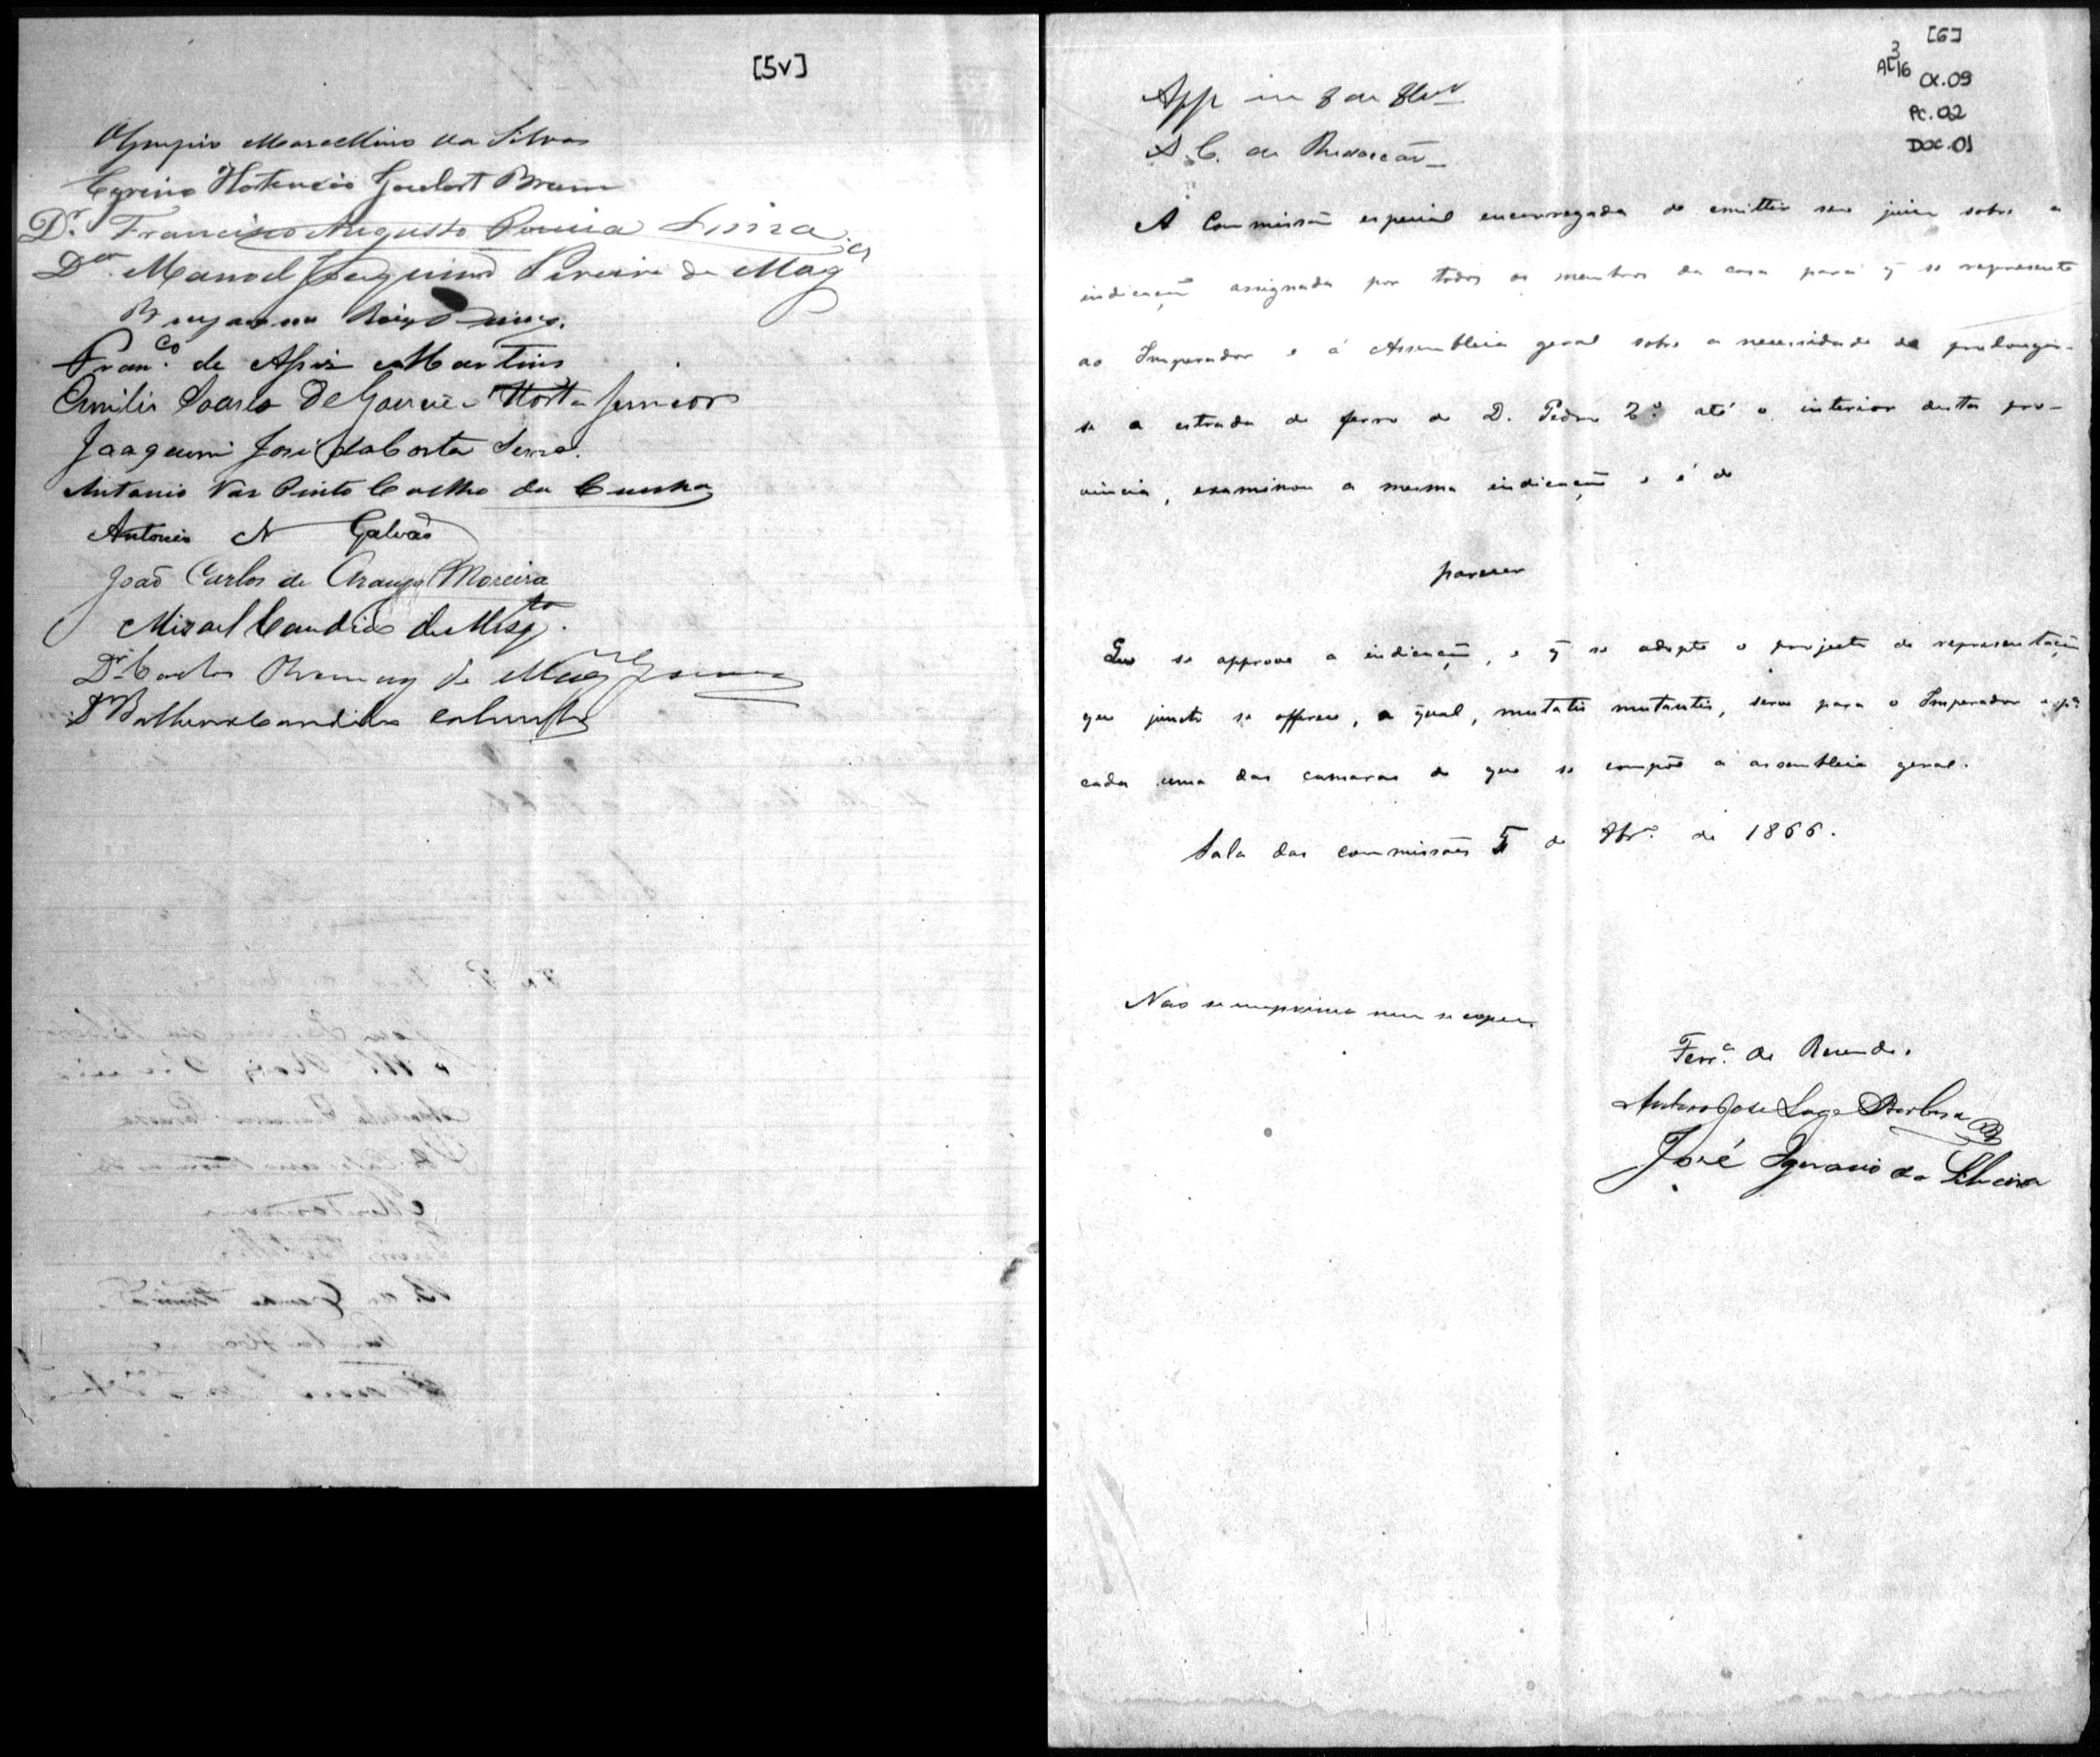 [5v]
Olympio Marcellino da Silva
Cyrino Hortencio Goulart Brum
Dr. Francisco Augusto Pereira Lima
Dor. Manoel Joaquim Pereira de Magcs
Franco. de Assis Martins
Emilio Soares de Gouvêa Horta Junior
Joaquim José da Costa Sena
Antonio Vaz Pinto Coelho da Cunha
Antonio N Galvão
João Carlos de Araujo Moreira
Misael Candido de Mesqta.
Dr. Carlos
Dr
[6]
3
AL16
CX.09
PC.02
DOC.01
App em 3ª
A C. de Redacção
A Commissão especial encarregada de emittir seu juizo sobre a
indicação assignada por todos os membros da casa para q̃ se represente
ao Imperador e á Assembleia geral sobre a necessidade de prolongar-
se a estrada de ferro de D. Pedro 2º até o interior desta pro-
vincia, examinou a mesma indicação e é de
parecer
Que se approve a indicação, e q̃ se adopte o projecto de representação
que juncto se offerece, o qual, mutatis mutantis, serve para o Imperador e pª
cada uma das camaras de que se compõe a assembleia geral.
Sala das commissões de de 1866.
Não se imprima nem se copie.
Ferrª. de Rezende.
Antero José Lage Barbosa
José Ignacio da Silveira